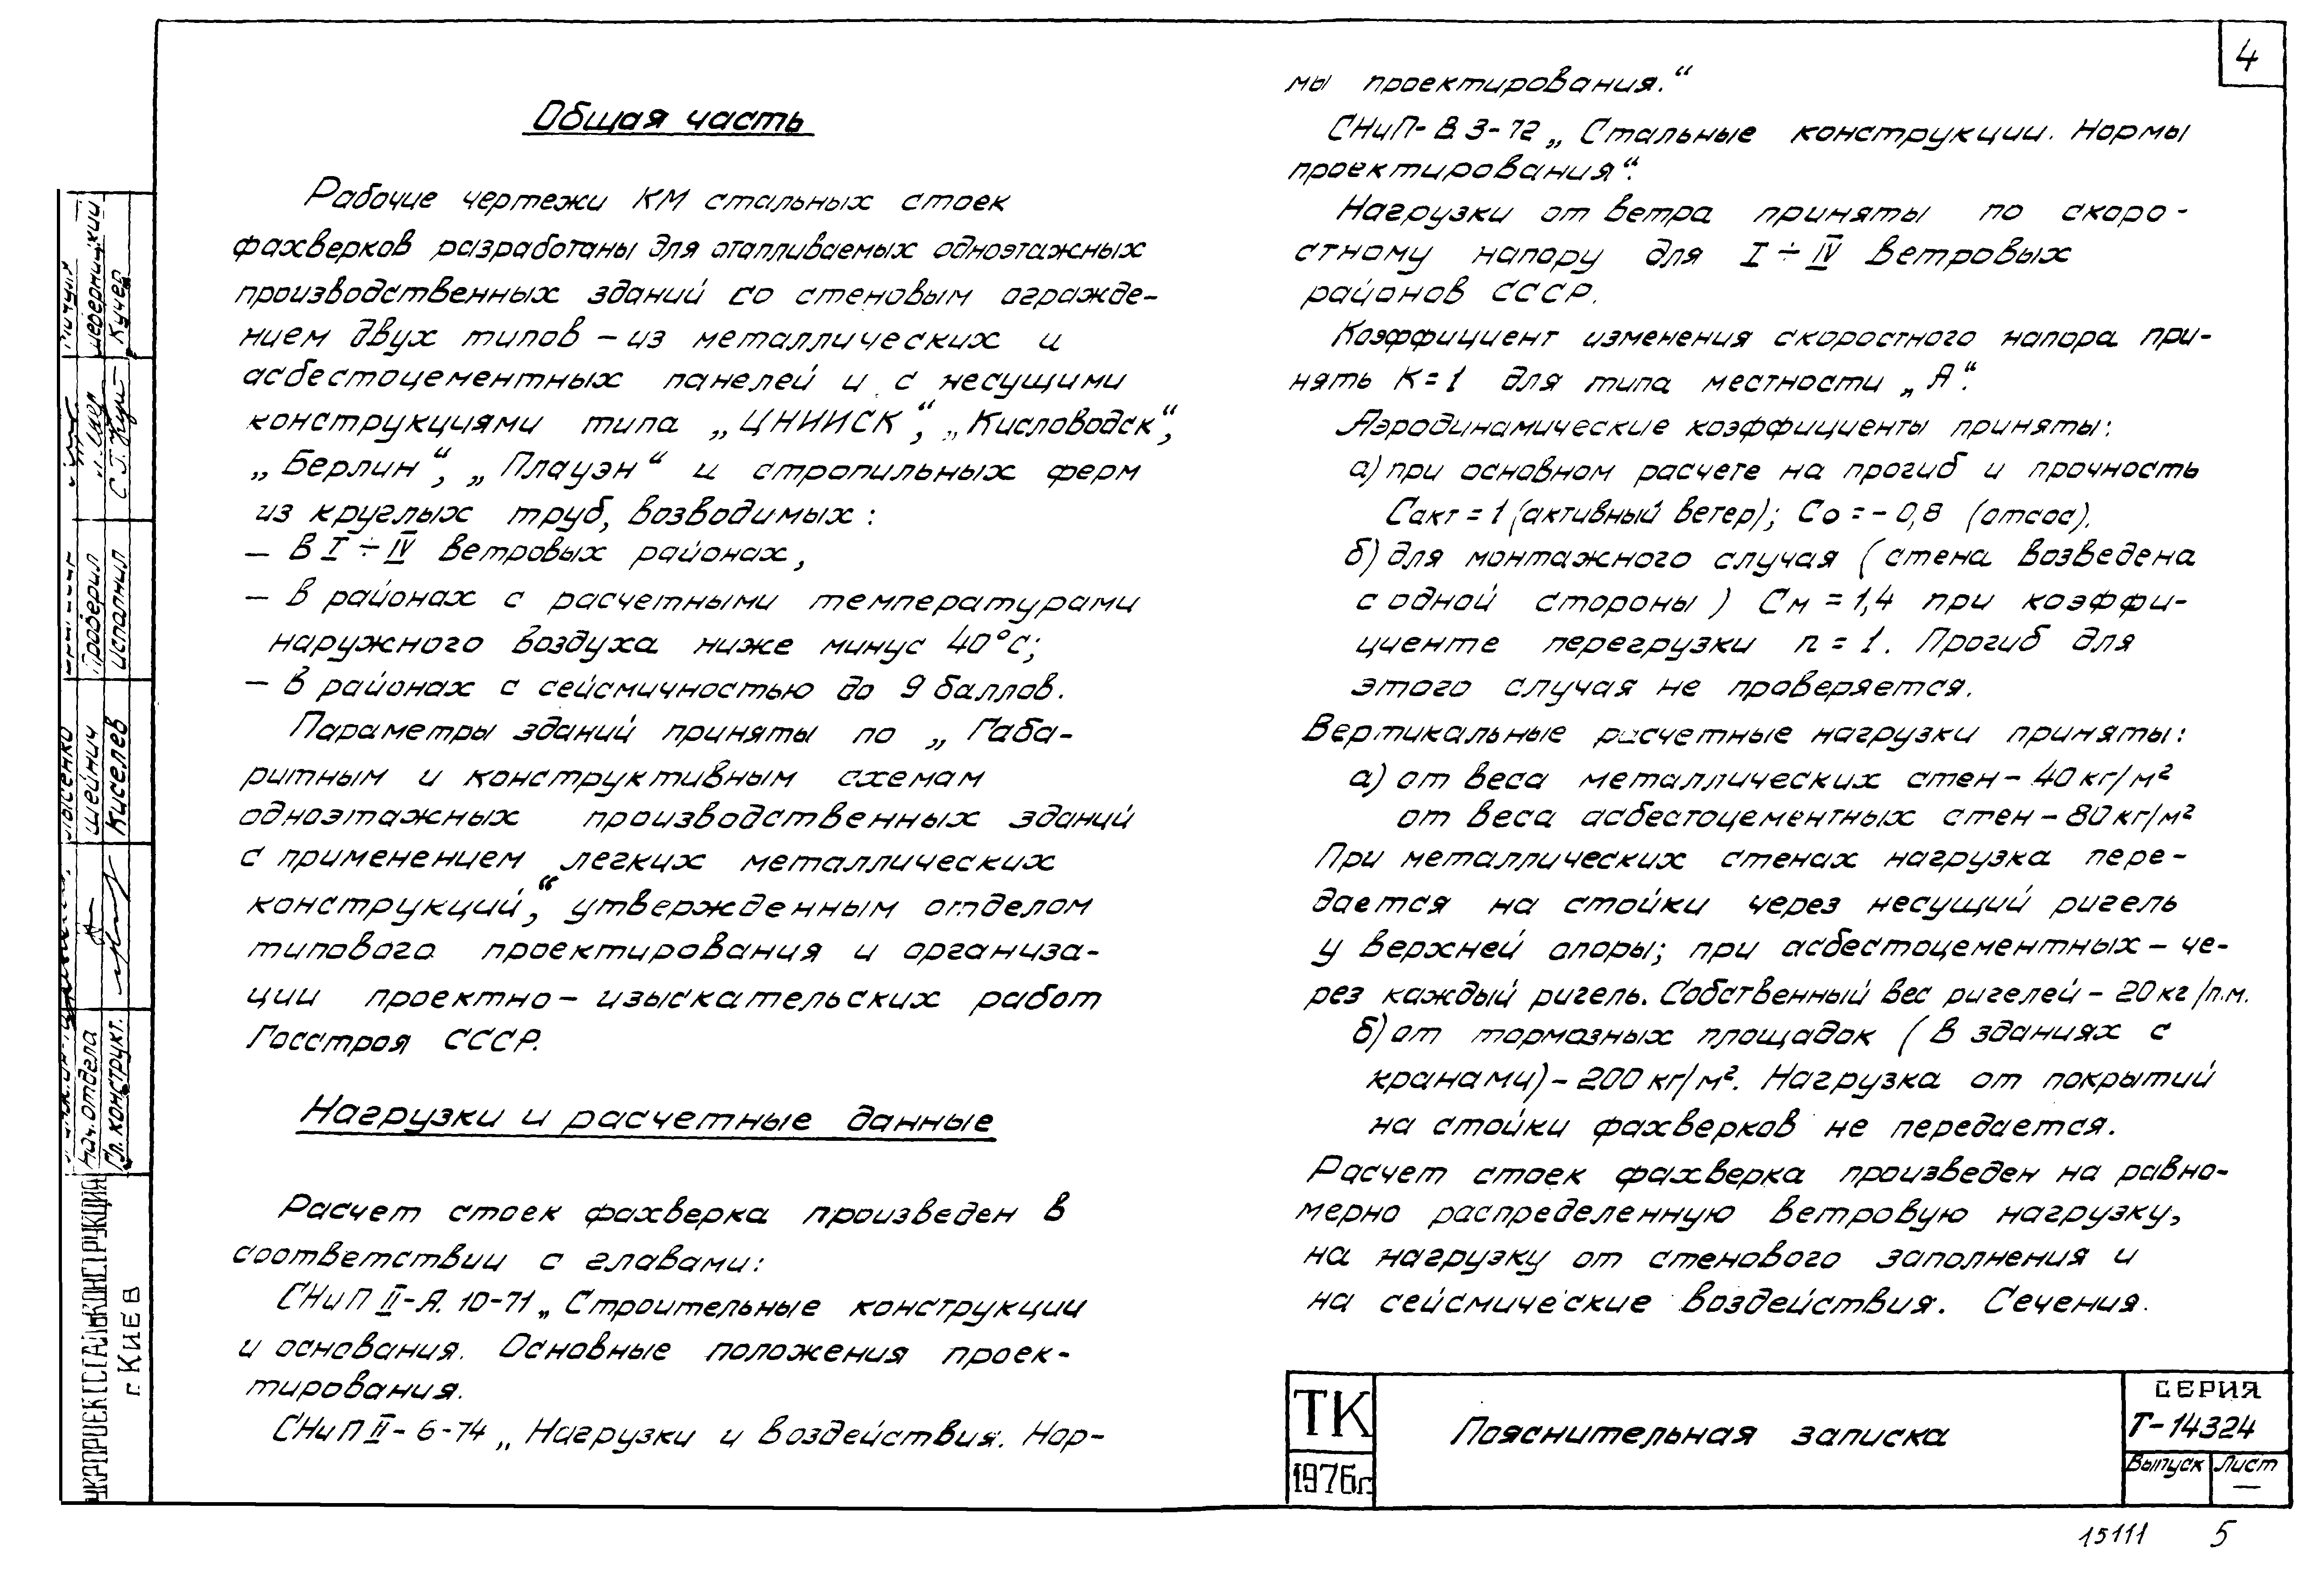 4
Общая часть
Рабочие чертежи КМ стальных стоек
фахверков разработаны для отапливаемых одноэтажных
производственных зданий со стеновым огражде-
нием двух типов – из металлических и
асбестоцементных панелей и с несущими
конструкциями типа „ЦНИИСК“, „Кисловодск“,
„Берлин“, „Плауэн“ и стропильных ферм
из круглых труб, возводимых:
– в I ÷ IV ветровых районах,
– в районах с расчетными температурами
наружного воздуха ниже минус 40°С;
– в районах с сейсмичностью до 9 баллов.
Параметры зданий приняты по „Габа-
ритным и конструктивным схемам
одноэтажных производственных зданий
с применением легких металлических
конструкций“, утвержденным отделом
типового проектирования и организа-
ции проектно – изыскательских работ
Госстроя СССР.
Нагрузки и расчетные данные
Расчет стоек фахверка произведен в
соответствии с главами:
СНиП II-А. 10-71 „Строительные конструкции
и основания. Основные положения проек-
тирования.
СНиП II - 6-74 „Нагрузки и воздействия. Нор-
мы проектирования.“
СНиП- В. 3-72 „Стальные конструкции. Нормы
проектирования“.
Нагрузки от ветра приняты по скоро-
стному напору для I ÷ IV ветровых
районов СССР.
Коэффициент изменения скоростного напора при-
нять К=1 для типа местности „А“.
Аэродинамические коэффициенты приняты:
а) при основном расчете на прогиб и прочность
Сакт = 1 (активный ветер); Со = - 0,8 (отсос).
б) для монтажного случая (стена возведена
с одной стороны) См = 1,4 при коэффи-
циенте перегрузки n = 1. Прогиб для
этого случая не проверяется.
Вертикальные расчетные нагрузки приняты:
а) от веса металлических стен – 40 кг/м²
от веса асбестоцементных стен – 80 кг/м²
При металлических стенах нагрузка пере-
дается на стойки через несущий ригель
у верхней опоры; при асбестоцементных – че-
рез каждый ригель. Собственный вес ригелей – 20 кг/п.м.
б) от тормозных площадок (в зданиях с
кранами) – 200 кг/м². Нагрузка от покрытий
на стойки фахверков не передается.
Расчет стоек фахверка произведен на равно-
мерно распределенную ветровую нагрузку,
на нагрузку от стенового заполнения и
на сейсмические воздействия. Сечения.
ТК
1976г
Пояснительная записка
СЕРИЯ
Т-14324
Выпуск Лист
—
15111 5
УКРПРОЕКТСТАЛЬКОНСТРУКЦИЯ
г. КИЕВ
Нач. отдела Шейнич Проверил
Гл. конструкт. Киселев Исполнил Кучер